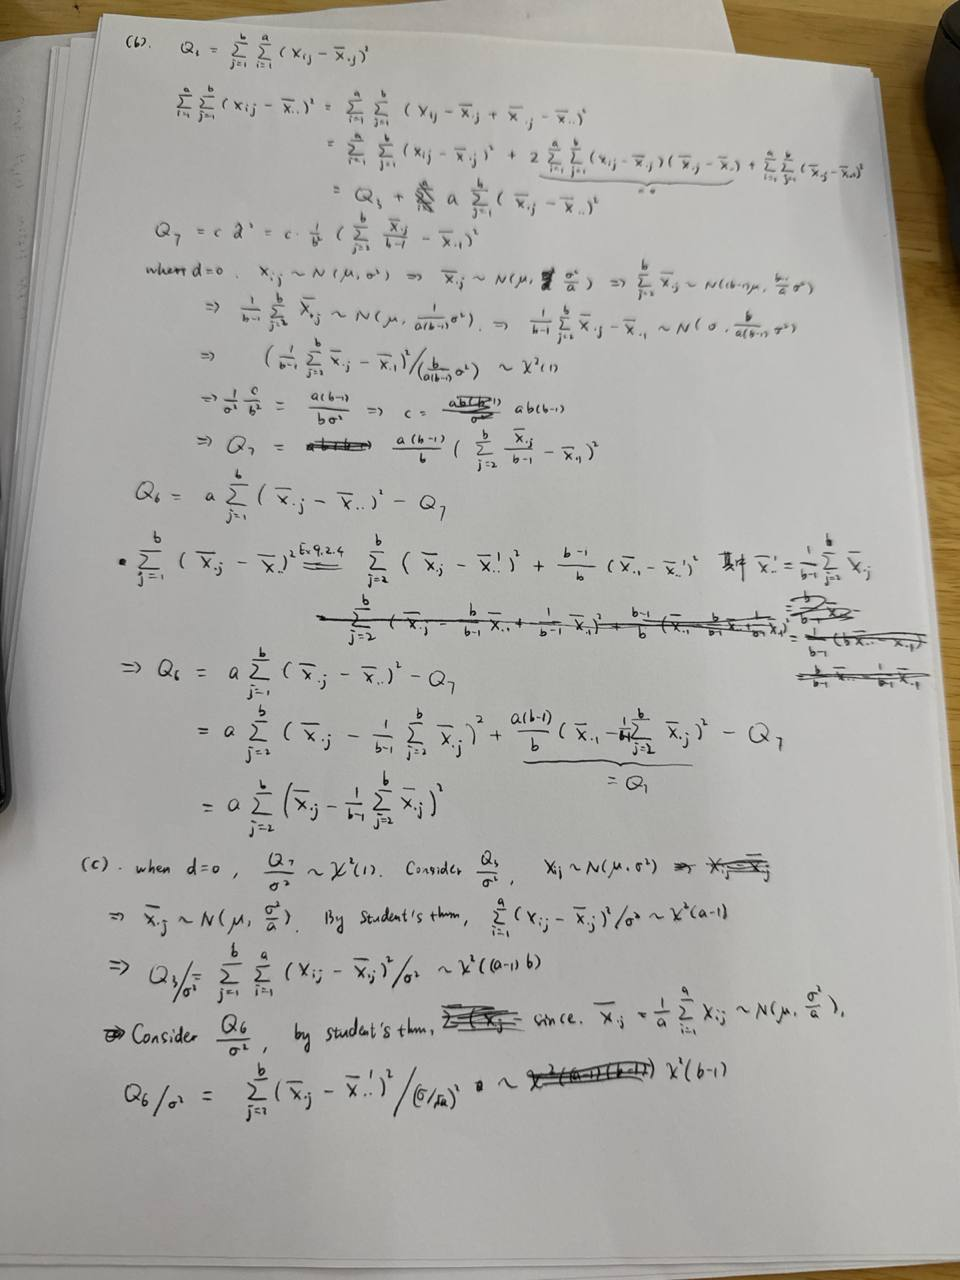 (b). Q₃ = Σ_{j=1}^{b} Σ_{i=1}^{a} (X_{ij} − X̄_{·j})²
Σ_{i=1}^{a} Σ_{j=1}^{b} (X_{ij} − X̄_{··})² = Σ_{i=1}^{a} Σ_{j=1}^{b} (X_{ij} − X̄_{·j} + X̄_{·j} − X̄_{··})²
= Σ_{i=1}^{a} Σ_{j=1}^{b} (X_{ij} − X̄_{·j})² + 2 Σ_{i=1}^{a} Σ_{j=1}^{b} (X_{ij} − X̄_{·j})(X̄_{·j} − X̄_{··}) + Σ_{i=1}^{a} Σ_{j=1}^{b} (X̄_{·j} − X̄_{··})²
= 0
= Q₃ + a Σ_{j=1}^{b} (X̄_{·j} − X̄_{··})²
Q₇ = c d̂² = c · 1/b² (Σ_{j=2}^{b} X̄_{·j}/(b−1) − X̄_{·1})²
when d=0. X_{ij} ~ N(μ, σ²) ⇒ X̄_{·j} ~ N(μ, σ²/a) ⇒ Σ_{j=2}^{b} X̄_{·j} ~ N((b−1)μ, (b−1)/a σ²)
⇒ 1/(b−1) Σ_{j=2}^{b} X̄_{·j} ~ N(μ, 1/(a(b−1)) σ²). ⇒ 1/(b−1) Σ_{j=2}^{b} X̄_{·j} − X̄_{·1} ~ N(0, b/(a(b−1)) σ²)
⇒ (1/(b−1) Σ_{j=2}^{b} X̄_{·j} − X̄_{·1})² / (b/(a(b−1)) σ²) ~ χ²(1)
⇒ 1/σ² c/b² = a(b−1)/(bσ²) ⇒ c = ab(b−1)
⇒ Q₇ = a(b−1)/b (Σ_{j=2}^{b} X̄_{·j}/(b−1) − X̄_{·1})²
Q₆ = a Σ_{j=1}^{b} (X̄_{·j} − X̄_{··})² − Q₇
· Σ_{j=1}^{b} (X̄_{·j} − X̄_{··})² =^{Ex 9.2.4} Σ_{j=2}^{b} (X̄_{·j} − X̄_{··}')² + (b−1)/b (X̄_{·1} − X̄_{··}')² 其中 X̄_{··}' = 1/(b−1) Σ_{j=2}^{b} X̄_{·j}
⇒ Q₆ = a Σ_{j=1}^{b} (X̄_{·j} − X̄_{··})² − Q₇
= a Σ_{j=2}^{b} (X̄_{·j} − 1/(b−1) Σ_{j=2}^{b} X̄_{·j})² + a(b−1)/b (X̄_{·1} − 1/(b−1) Σ_{j=2}^{b} X̄_{·j})² − Q₇
= Q₇
= a Σ_{j=2}^{b} (X̄_{·j} − 1/(b−1) Σ_{j=2}^{b} X̄_{·j})²
(c). when d=0, Q₇/σ² ~ χ²(1). Consider Q₃/σ², X_{ij} ~ N(μ, σ²)
⇒ X̄_{·j} ~ N(μ, σ²/a). By student's thm, Σ_{i=1}^{a} (X_{ij} − X̄_{·j})²/σ² ~ χ²(a−1)
⇒ Q₃/σ² = Σ_{j=1}^{b} Σ_{i=1}^{a} (X_{ij} − X̄_{·j})²/σ² ~ χ²((a−1)b)
⇒ Consider Q₆/σ², by student's thm, since. X̄_{·j} = 1/a Σ_{i=1}^{a} X_{ij} ~ N(μ, σ²/a),
Q₆/σ² = Σ_{j=2}^{b} (X̄_{·j} − X̄_{··}')²/(σ/√a)² ~ χ²(b−1)